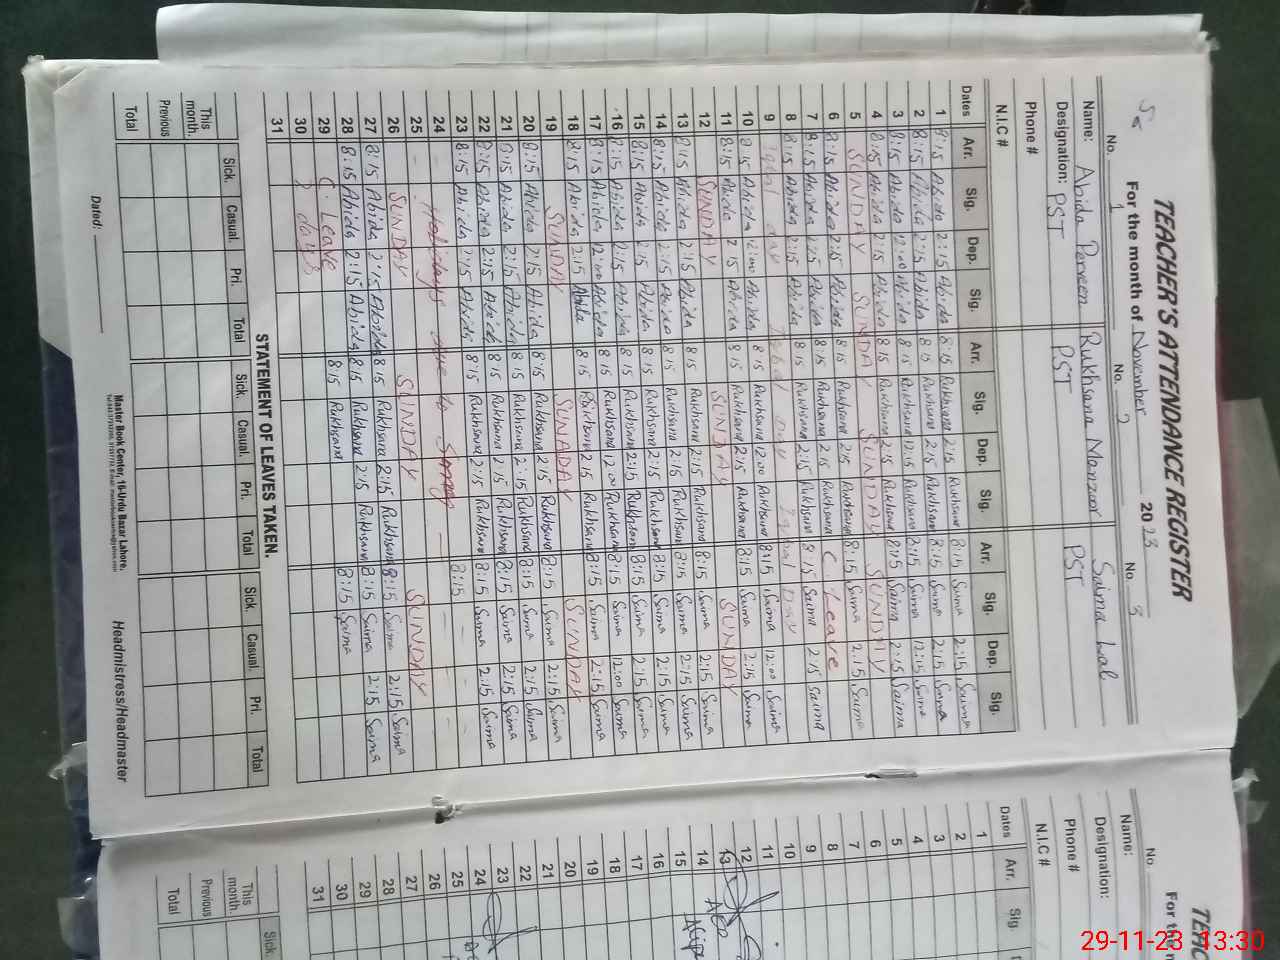 TEACHER'S ATTENDANCE REGISTER
For the month of November 2023
No. 1 No. 2 No. 3
Name: Abida Perveen Rukhsana Manzoor Saima Lal
Designation: PST PST PST
Phone #
N.I.C #
Dates Arr. Sig. Dep. Sig. Arr. Sig. Dep. Sig. Arr. Sig. Dep. Sig.
1 8:15 Abida 2:15 Abida 8:15 Rukhsana 2:15 Rukhsana 8:15 Saima 2:15 Saima
2 8:15 Abida 2:15 Abida 8:15 Rukhsana 2:15 Rukhsana 8:15 Saima 2:15 Saima
3 8:15 Abida 12:00 Abida 8:15 Rukhsana 12:15 Rukhsana 8:15 Saima 12:15 Saima
4 8:15 Abida 2:15 Abida 8:15 Rukhsana 2:15 Rukhsana 8:15 Saima 2:15 Saima
5 SUNDAY SUNDAY SUNDAY SUNDAY
6 8:15 Abida 2:15 Abida 8:15 Rukhsana 2:15 Rukhsana 8:15 Saima 2:15 Saima
7 8:15 Abida 2:15 Abida 8:15 Rukhsana 2:15 Rukhsana C. Leave
8 8:15 Abida 2:15 Abida 8:15 Rukhsana 2:15 Rukhsana 8:15 Saima 2:15 Saima
9 Iqbal day Iqbal Day Iqbal Day
10 8:15 Abida 12:00 Abida 8:15 Rukhsana 12:00 Rukhsana 8:15 Saima 12:00 Saima
11 8:15 Abida 2:15 Abida 8:15 Rukhsana 2:15 Rukhsana 8:15 Saima 2:15 Saima
12 SUNDAY SUNDAY SUNDAY
13 8:15 Abida 2:15 Abida 8:15 Rukhsana 2:15 Rukhsana 8:15 Saima 2:15 Saima
14 8:15 Abida 2:15 Abida 8:15 Rukhsana 2:15 Rukhsana 8:15 Saima 2:15 Saima
15 8:15 Abida 2:15 Abida 8:15 Rukhsana 2:15 Rukhsana 8:15 Saima 2:15 Saima
16 8:15 Abida 2:15 Abida 8:15 Rukhsana 2:15 Rukhsana 8:15 Saima 2:15 Saima
17 8:15 Abida 12:00 Abida 8:15 Rukhsana 12:00 Rukhsana 8:15 Saima 12:00 Saima
18 8:15 Abida 2:15 Abida 8:15 Rukhsana 2:15 Rukhsana 8:15 Saima 2:15 Saima
19 SUNDAY SUNADAY SUNDAY
20 8:15 Abida 2:15 Abida 8:15 Rukhsana 2:15 Rukhsana 8:15 Saima 2:15 Saima
21 8:15 Abida 2:15 Abida 8:15 Rukhsana 2:15 Rukhsana 8:15 Saima 2:15 Saima
22 8:15 Abida 2:15 Abida 8:15 Rukhsana 2:15 Rukhsana 8:15 Saima 2:15 Saima
23 8:15 Abida 2:15 Abida 8:15 Rukhsana 2:15 Rukhsana 8:15 Saima 2:15 Saima
24 Holidays due to 8:15
25
26 SUNDAY SUNDAY SUNDAY
27 8:15 Abida 2:15 Abida 8:15 Rukhsana 2:15 Rukhsana 8:15 Saima 2:15 Saima
28 8:15 Abida 2:15 Abida 8:15 Rukhsana 2:15 Rukhsana 8:15 Saima 2:15 Saima
29 C. Leave 8:15 Rukhsana 8:15 Saima
30 2 days
31
STATEMENT OF LEAVES TAKEN.
Sick. Casual. Pri. Total Sick. Casual. Pri. Total Sick. Casual. Pri. Total
This month.
Previous
Total
Dated:
Master Book Center, 16-Urdu Bazar Lahore.
Headmistress/Headmaster
TEAC
For the m
No.
Name:
Designation:
Phone #
N.I.C #
Dates Arr. Sig.
1
2
3
4
5
6
7
8
9
10
11
12
13
14
15
16
17
18
19
20
21
22
23
24
25
26
27
28
29
30
31
Sick.
This month.
Previous
Total
29-11-23 13:30